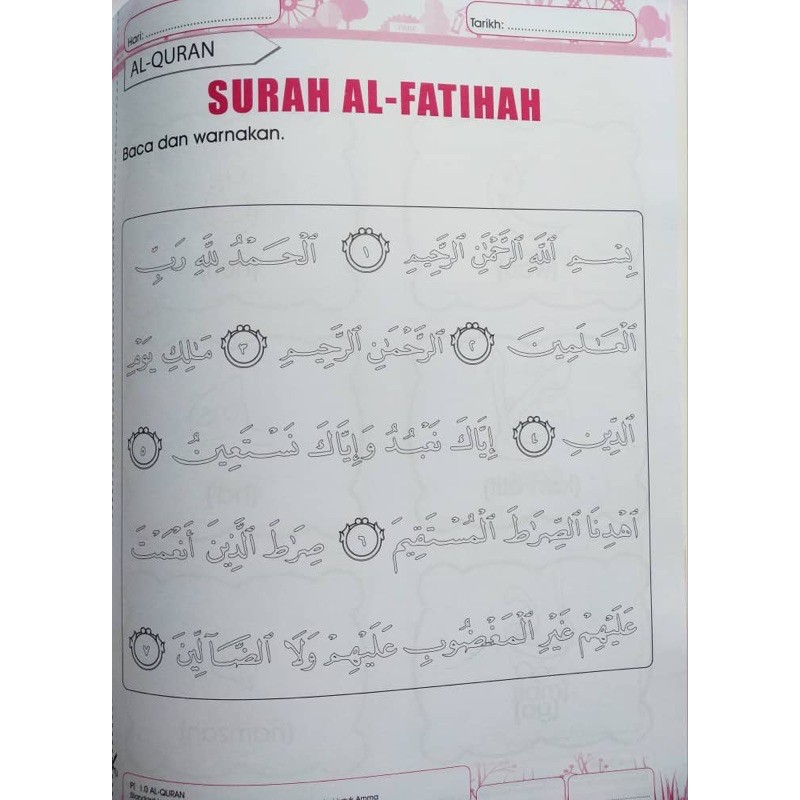 Hari: ........................
Tarikh: ........................
AL-QURAN
SURAH AL-FATIHAH
Baca dan warnakan.
بِسْمِ ٱللَّهِ ٱلرَّحْمَٰنِ ٱلرَّحِيمِ ١ ٱلْحَمْدُ لِلَّهِ رَبِّ
ٱلْعَـٰلَمِينَ ٢ ٱلرَّحْمَٰنِ ٱلرَّحِيمِ ٣ مَـٰلِكِ يَوْمِ
ٱلدِّينِ ٤ إِيَّاكَ نَعْبُدُ وَإِيَّاكَ نَسْتَعِينُ ٥
ٱهْدِنَا ٱلصِّرَٰطَ ٱلْمُسْتَقِيمَ ٦ صِرَٰطَ ٱلَّذِينَ أَنْعَمْتَ
عَلَيْهِمْ غَيْرِ ٱلْمَغْضُوبِ عَلَيْهِمْ وَلَا ٱلضَّآلِّينَ ٧
PI 1.0 AL-QURAN
Amma